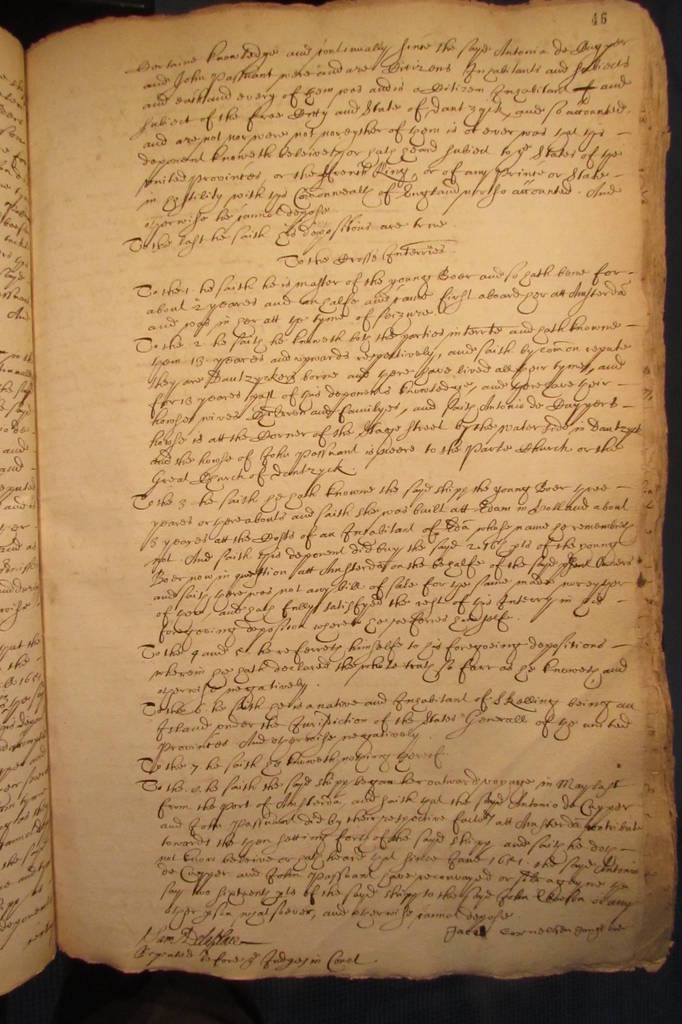 46
Certaine knowledge and continually since the sayd Antonio de Cuyper
and John Passman were and are Citizens Inhabitants and subiects
and each and every of them was and is a Citizen Inhabitant and
subiect of the free Citty and State of Dantzyck, and so accounted
and are not nor were not nor eyther of them is or ever was that this
deponent knoweth beleiveth or hath heard subiect to ye States of the
United Provinces, or the French King, or of any Prince or State
in hostility with the Comonwealth of England nor so accounted. And
otherwise he cannot depose
To the last he saith his depositions are true
To the Crosse Interries
To the 1 he saith he is master of the young Boer and so hath bene for
about 2 yeares and an halfe and came first aboard her att Amsterdam
and was in her att the tyme of seizure
To the 2 he saith he knoweth both the parties interrte and hath knowne
them 13 yeares and upwards respectively, and saith by comon repute
they are Dantzyckers borne and there have lived all their tymes, and
for 13 yeares past of this deponents knowledge, and there have their
houses wives Children and familyes, and saith Antonio de Cuypers
house is att the Corner of the Street by the water side in Dantzyk
and the house of John Passman is neere to the Church or the
Great Church of Dantzyck
To the 3 he saith he hath knowne the sayd shipp the young Boer three
yeares or thereabouts and saith she was built att Edam in Holland about
3 yeares att the Costs of an Inhabitant of Edam whose name he remembers
not. And saith this deponent did buy the sayd 2 16th pts of the young
Boer now in question att Amsterdam on the behalfe of the sayd Owners
and saith there was not any bill of sale for the same made nor eyther
of them, and hath fully satisfyed the rest of this Interry in his
foregoeing deposition whereto he referres himselfe.
To the 4 and 5 he referreth himselfe to his foregoeing depositions
wherein he hath declared the whole truth so farr as he knoweth and
otherwise negatively.
To the 6 he saith he is a native and Inhabitant of Skelling being an
Island under the Jurisdiction of the States Generall of the united
Provinces And otherwise negatively.
To the 7 he saith he knoweth nothing thereof
To the 8 he saith the sayd shipp began her outward voyage in May last
from the port of Amsterdam, and saith that the sayd Antonio de Cuyper
and John Passman did by their respective factors att Amsterdam contribute
towards the then setting forth of the sayd shipp and saith he doth
not know beleive or hath heard that since June 1651 the sayd Antonio
de Cuyper and John Passman have reconveyed or the
sayd two sixteenth pts of the sayd shipp to the sayd John or any
other person whatsoever, and otherwise cannot depose.
Jacob Cornelisen
Repeated before ye Judges in Court